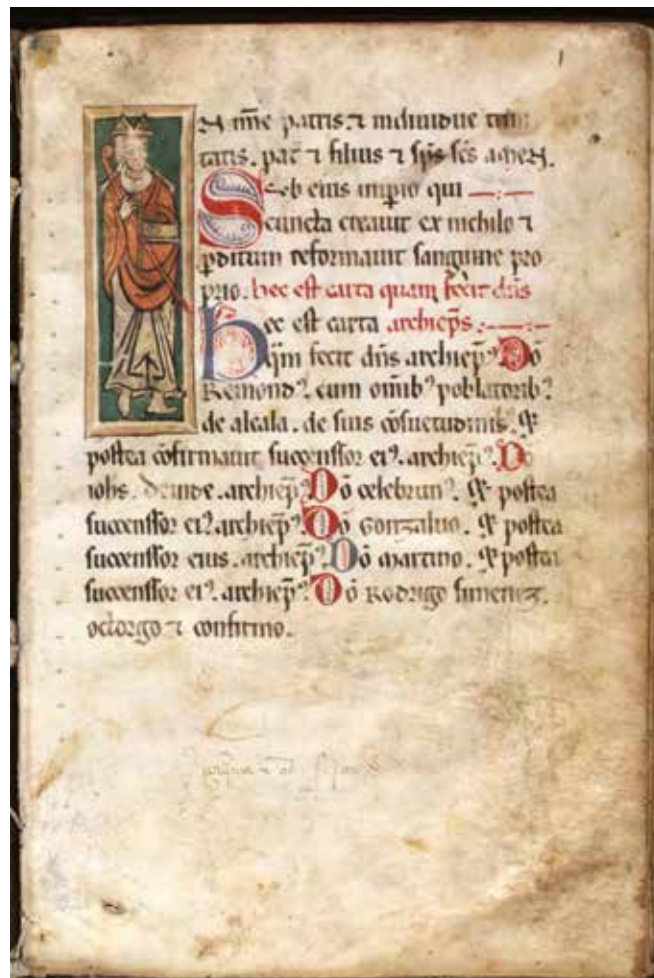 1
N nn̄e patris. ⁊ indiuidue trini
tatis. pat̄ ⁊ filius ⁊ sp̄s sc̄s amen.
Sub eius imp̄io qui
cuncta creauit ex nichilo ⁊
ꝑditum reformauit sanguine pro
prio. hec est carta quam fecit dn̄s
hec est carta archiep̄s
q̄m fecit dn̄s archiep̄ꝰ Dō
Remondꝰ. cum om̄ibꝰ poblatoribꝰ
de alcala. de suis cōsuetudinis. ⁊
postea cōfirmauit succenssor eiꝰ. archiep̄ꝰ. Dō
iohs. deinde. archiep̄ꝰ Dō celebrunꝰ. ⁊ postea
succenssor eiꝰ archiep̄ꝰ Dō gonzaluo. ⁊ postea
succenssor eius. archiep̄ꝰ Dō martino. ⁊ postea
succenssor eiꝰ. archiep̄ꝰ Dō Rodrigo simenez.
octorgo ⁊ confirmo.